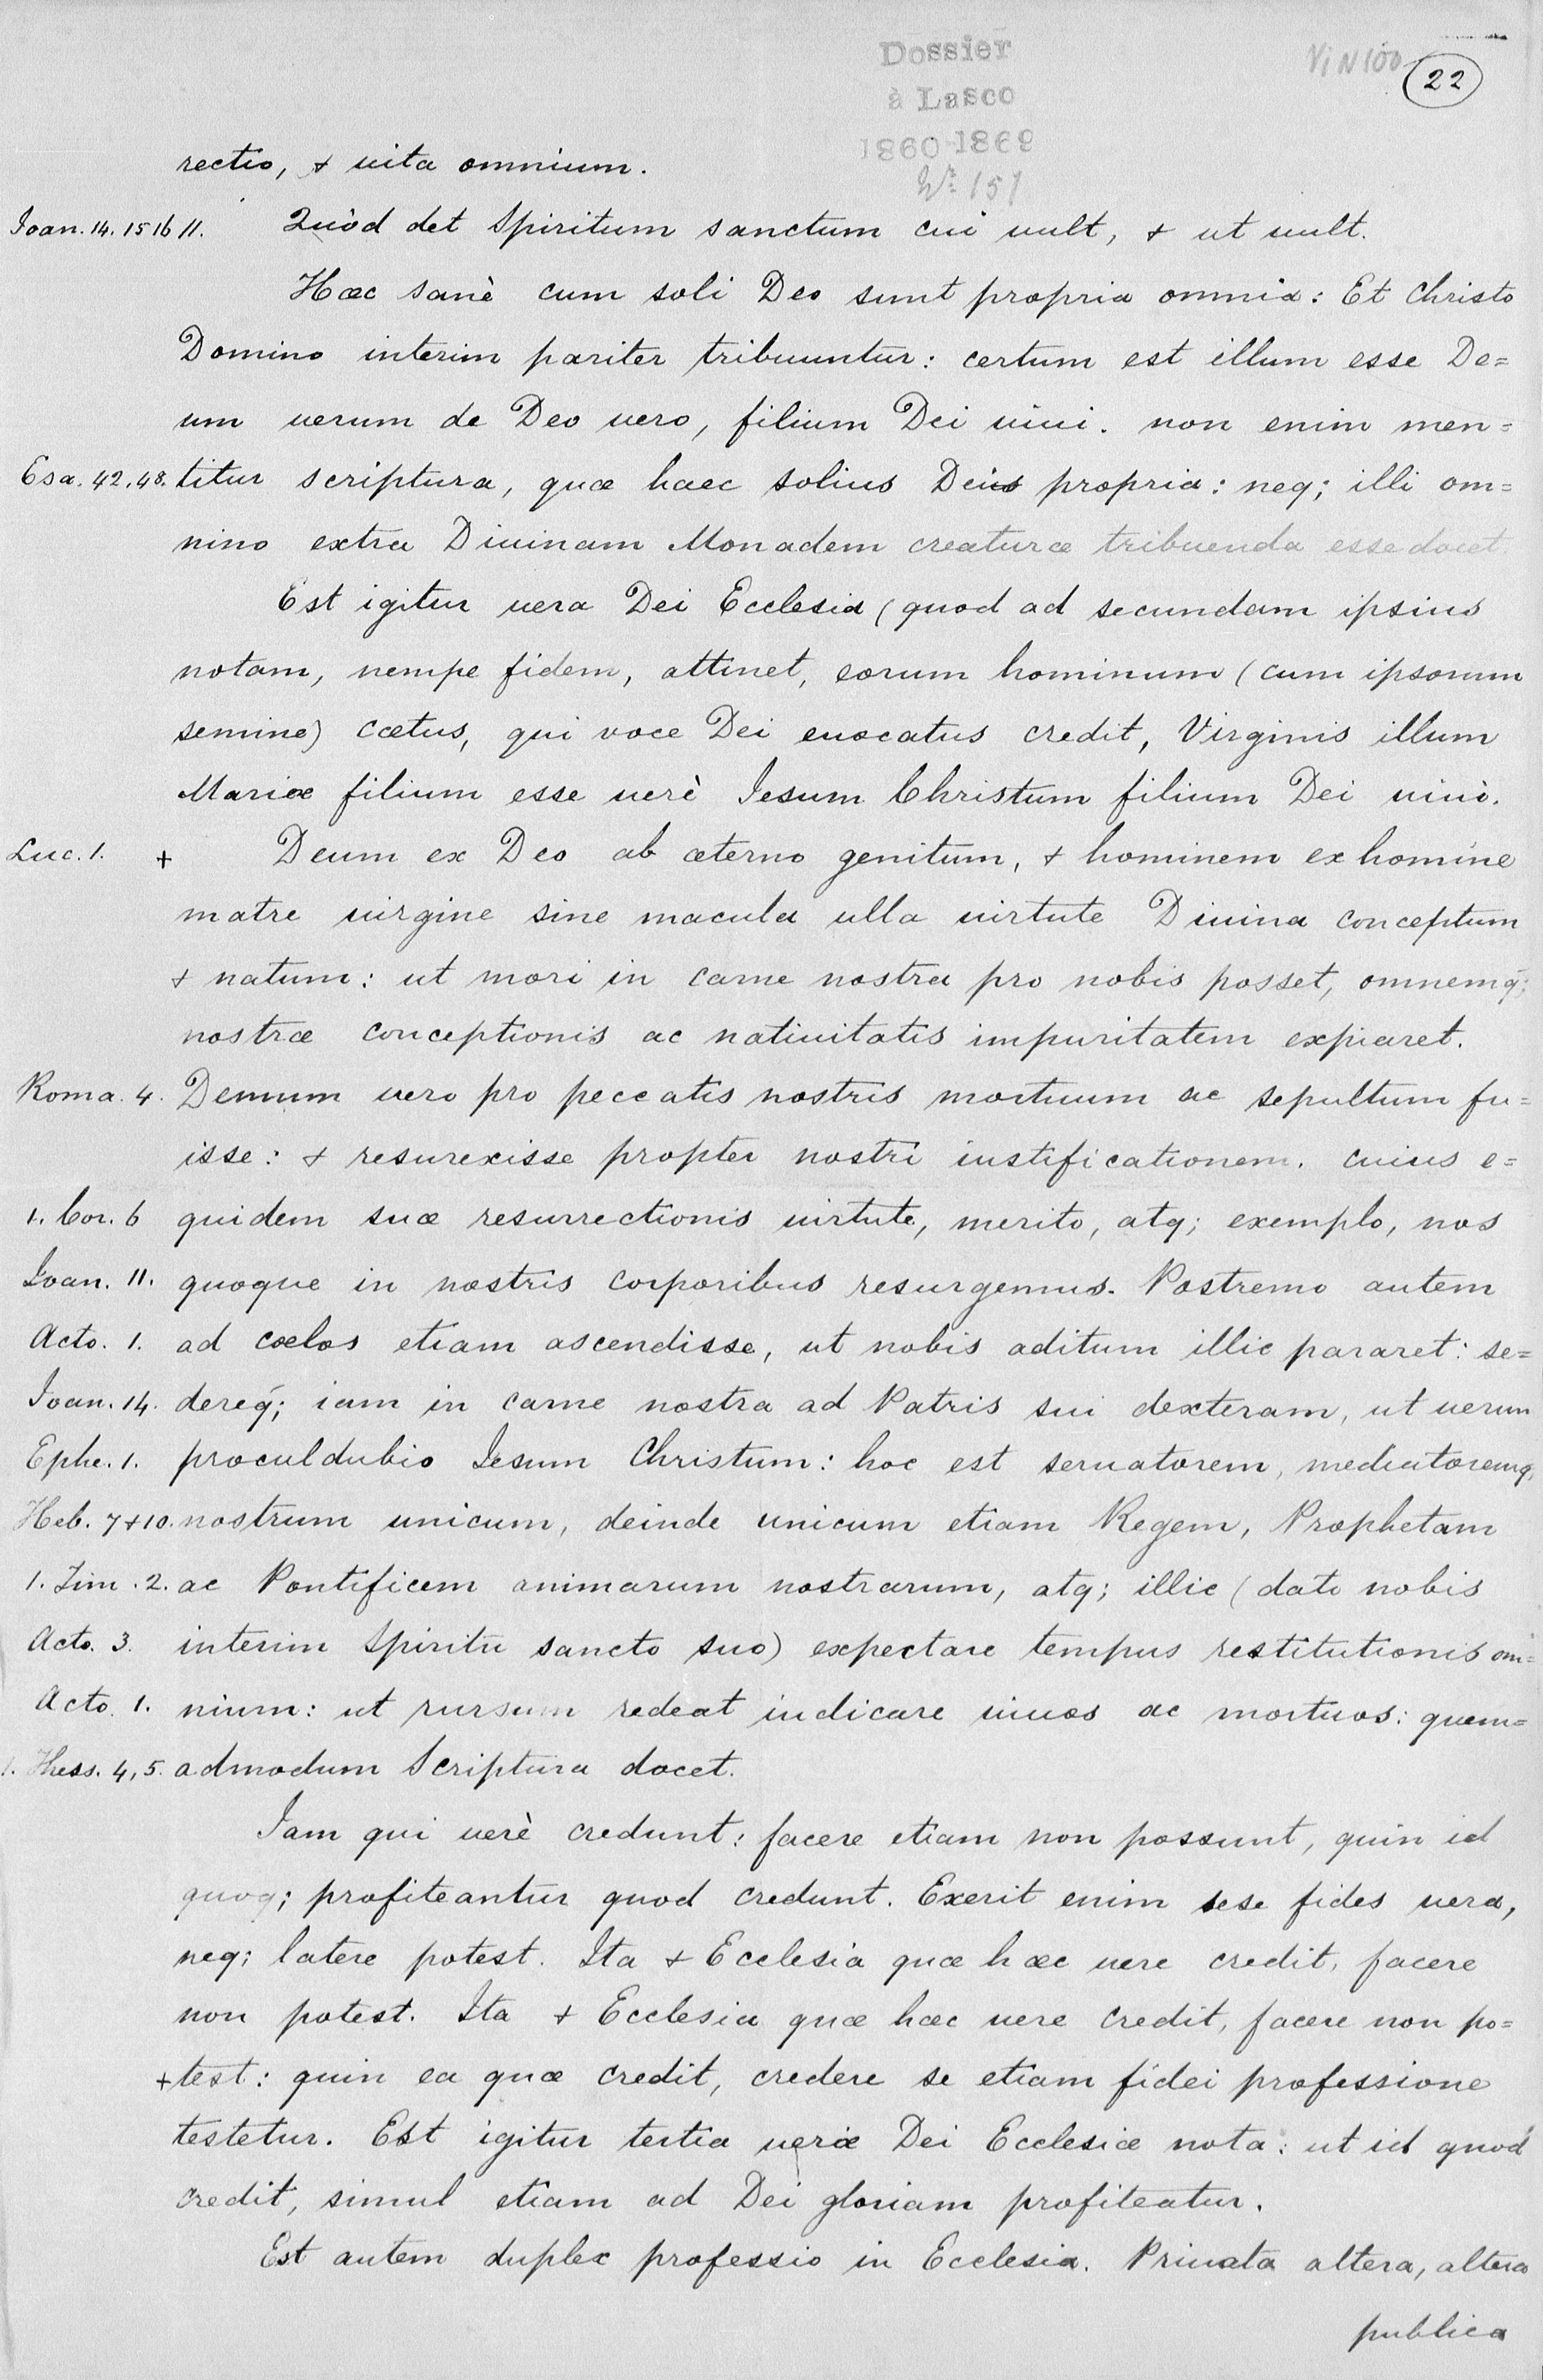 Dossier
à Lasco
1860-1869
Nr. 151
ViN100
22
rectio, & uita omnium.
Ioan. 14. 15 16 11. Quòd det Spiritum sanctum cui uult, & ut uult.
Hæc sanè cum soli Deo sunt propria omnia: Et Christo
Domino interim pariter tribuuntur: certum est illum esse De=
um uerum de Deo vero, filium Dei uiui. non enim men=
Esa. 42, 48. titur scriptura, quæ haec solius Deius propria: neq; illi om=
nino extra Diuinam Monadem creaturæ tribuenda esse docet.
Est igitur uera Dei Ecclesia (quod ad secundam ipsius
notam, nempe fidem, attinet, eorum hominum (cum ipsorum
semine) cœtus, qui voce Dei euocatus credit, Virginis illum
Mariæ filium esse uerè Iesum Christum filium Dei uiui.
Luc. 1. + Deum ex Deo ab æterno genitum, & hominem ex homine
matre uirgine sine macula ulla uirtute Diuina conceptum
& natum: ut mori in carne nostra pro nobis posset, omnemq;
nostræ conceptionis ac natiuitatis impuritatem expiaret.
Roma. 4. Demum vero pro peccatis nostris mortuum ac sepultum fu=
isse: & resurexisse propter nostri iustificationem. cuius e=
1. Cor. 6 quidem suæ resurrectionis uirtute, merito, atq; exemplo, nos
Ioan. 11. quoque in nostris corporibus resurgemus. Postremo autem
Acto. 1. ad cœlos etiam ascendisse, ut nobis aditum illic pararet: se=
Ioan. 14. dereq́; iam in carne nostra ad Patris sui dexteram, ut uerum
Ephe. 1. proculdubio Iesum Christum: hoc est seruatorem, mediatoremq,
Heb. 7 & 10. nostrum unicum, deinde unicum etiam Regem, Prophetam
1. Tim. 2. ac Pontificem animarum nostrarum, atq; illic (dato nobis
Acto. 3. interim Spiritu sancto suo) expectare tempus restitutionis om=
Acto. 1. nium: ut rursum redeat iudicare uiuos ac mortuos: quem=
1. Thess. 4, 5. admodum Scriptura docet.
Iam qui uerè credunt: facere etiam non possunt, quin id
quoq; profiteantur quod credunt. Exerit enim sese fides uera,
neq; latere potest. Ita & Ecclesia quæ hæc uere credit, facere
non potest. Ita & Ecclesia quæ hæc uere credit, facere non po=
+ test: quin ea quæ credit, credere se etiam fidei professione
testetur. Est igitur tertia ueræ Dei Ecclesiæ nota: ut id quod
credit, simul etiam ad Dei gloriam profiteatur.
Est autem duplex professio in Ecclesia. Priuata altera, altera
publica